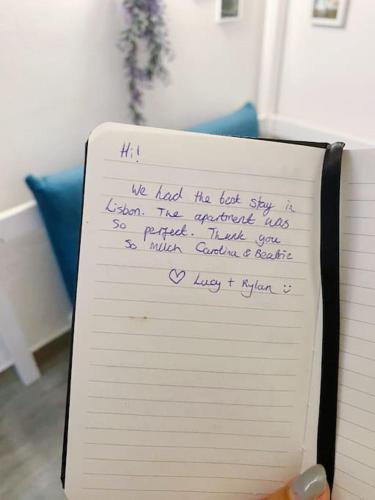 Hi!
We had the best stay in
Lisbon. The apartment was
so perfect. Thank you
so much Carolina & Beatriz
♡ Lucy + Rylan :)